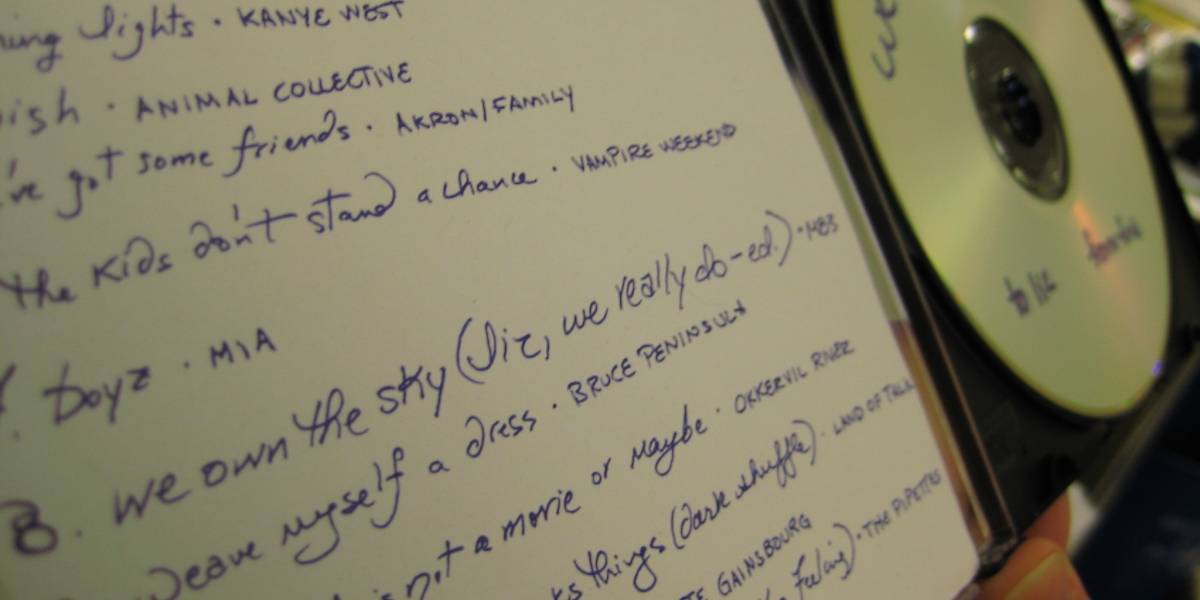 lights · KANYE WEST
· ANIMAL COLLECTIVE
've got some friends · AKRON/FAMILY
the kids don't stand a chance · VAMPIRE WEEKEND
boyz · MIA
8. we own the sky (liz, we really do-ed.) · M83
weave myself a dress · BRUCE PENINSULA
not a movie or maybe · OKKERVIL RIVER
things (dark shuffle) · LAND OF TALK
GAINSBOURG
feeling) · THE PIPETTES
we
to liz